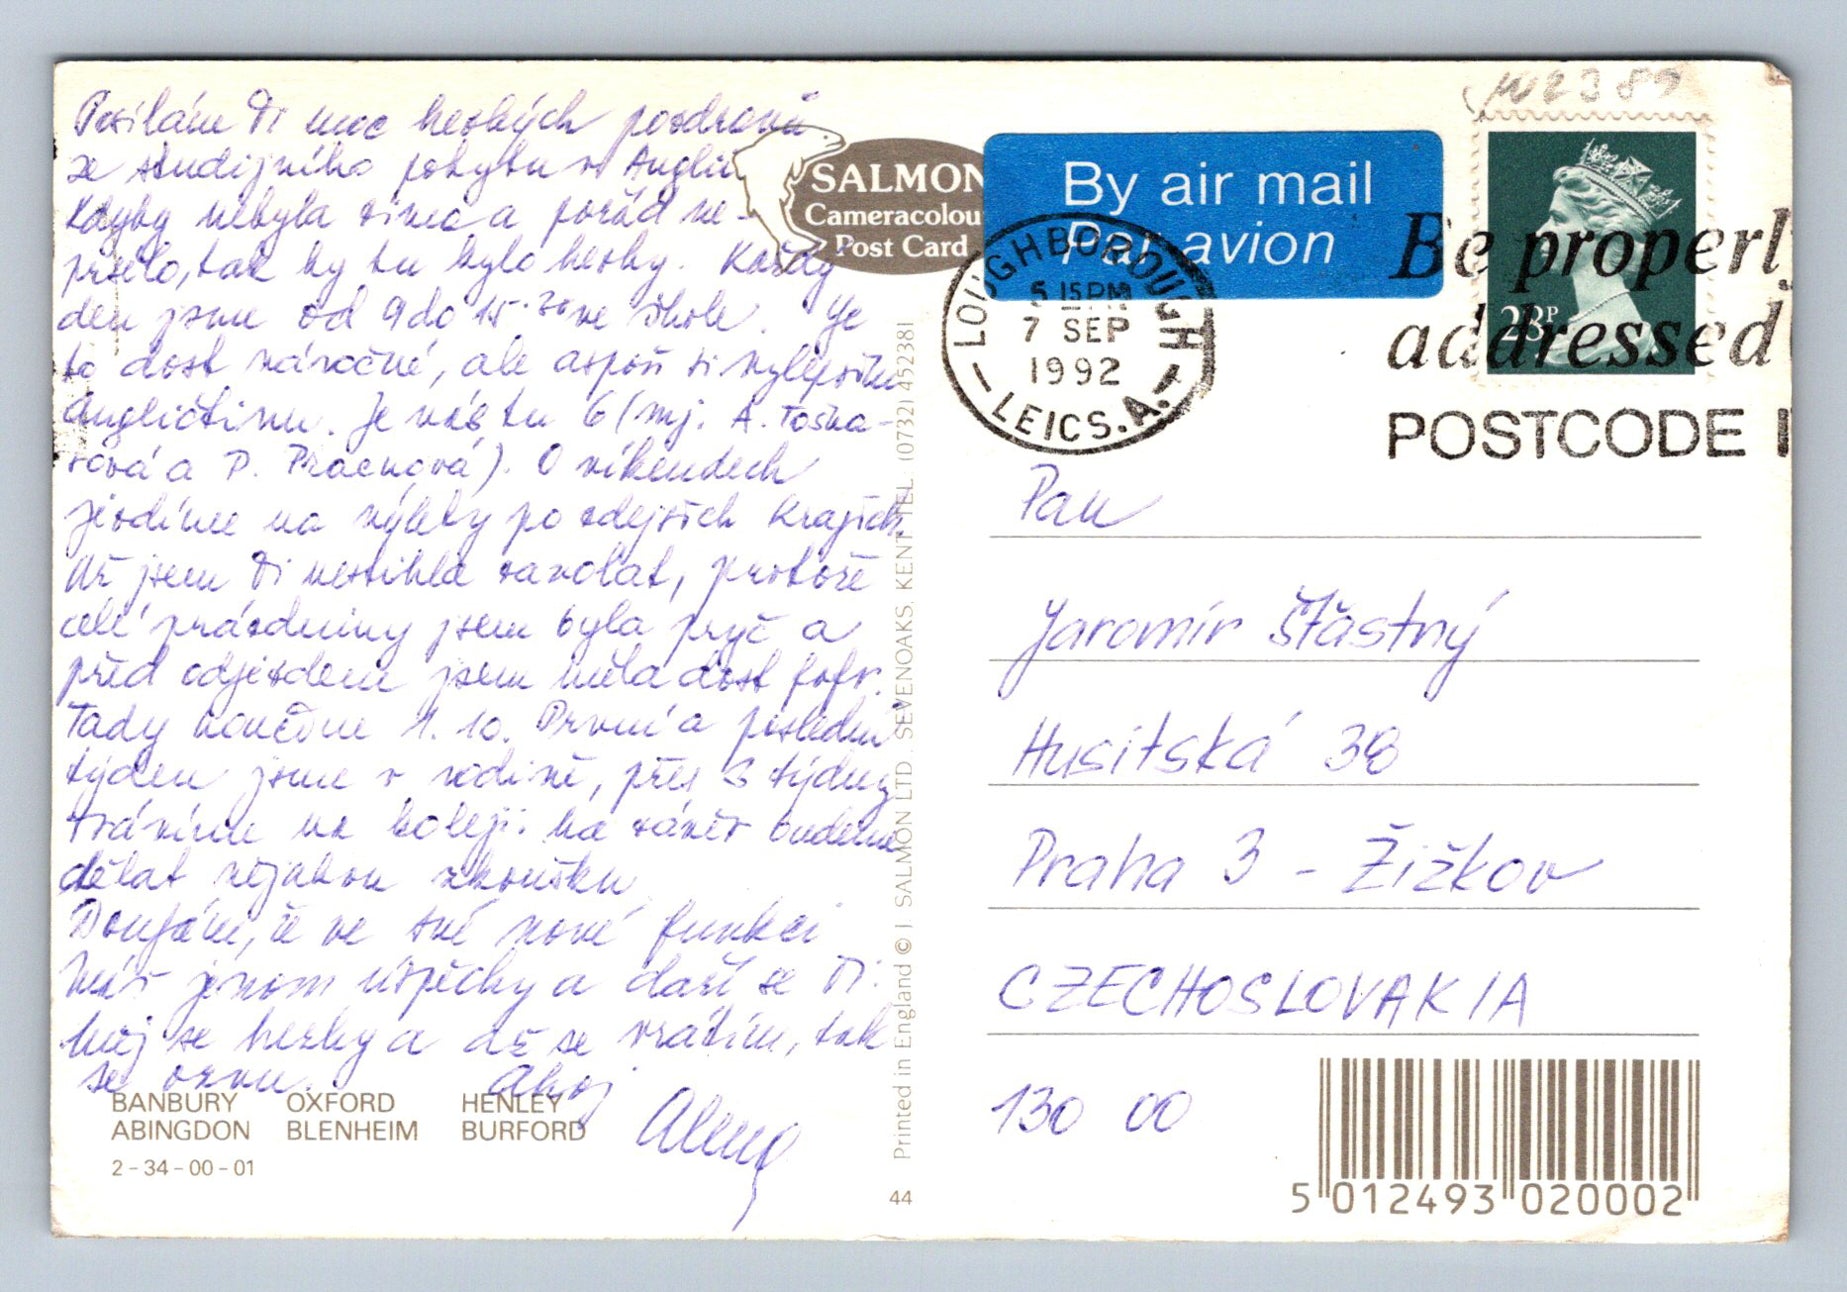 Posílám Ti moc hezkých pozdravů
ze studijního pobytu v Anglii.
Kdyby nebyla zima a pořád ne-
pršelo, tak by tu bylo hezky. Každý
den jsme od 9 do 15.30 ve škole. Je
to dost náročné, ale aspoň si vylepším
angličtinu. Je nás tu 6 (mj. A. Toška-
rová a P. Pracnová). O víkendech
jezdíme na výlety po zdejších krajích.
Už jsem Ti nestihla zavolat, protože
celé prázdniny jsem byla pryč a
před odjezdem jsem měla dost fofr.
Tady končíme 1. 10. První a poslední
týden jsme v rodině, přes 3 týdny
trávíme na koleji. Na závěr budeme
dělat nějakou zkoušku.
Doufám, že ve své nové funkci
máš jenom úspěchy a daří se Ti.
Měj se hezky a až se vrátím, tak
se ozvu. Ahoj
Alena
BANBURY OXFORD HENLEY
ABINGDON BLENHEIM BURFORD
2 - 34 - 00 - 01
SALMON
Cameracolou
Post Card
Printed in England © J. SALMON LTD. SEVENOAKS. KENT. TEL. (0732) 452381
44
By air mail
Par avion
LOUGHBOROUGH
5 15 PM
7 SEP
1992
LEICS. A.
28P
Be properly
addressed
POSTCODE I
Pan
Jaromír Šťastný
Husitská 38
Praha 3 - Žižkov
CZECHOSLOVAKIA
130 00
5 012493 020002